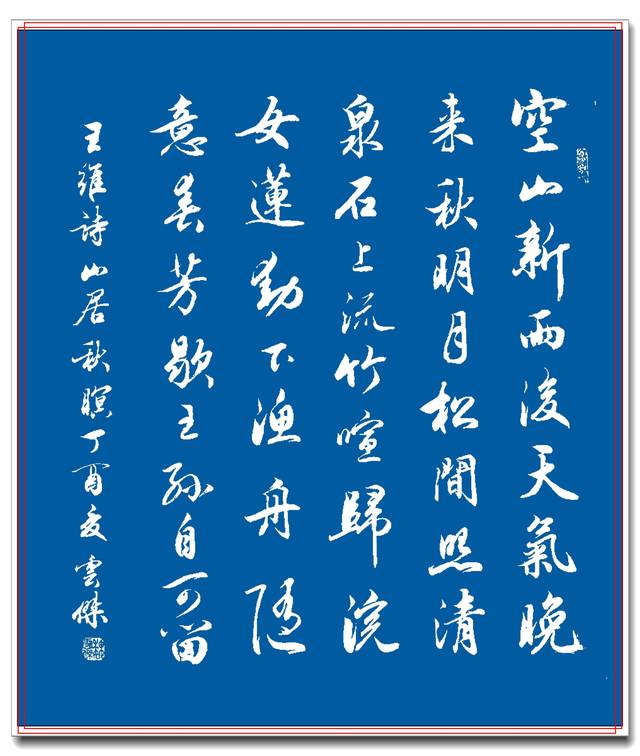 空山新雨後天氣晚
来秋明月松間照清
泉石上流竹喧歸浣
女蓮動下漁舟隨
意春芳歇王孫自可留
王維詩山居秋暝丁酉夏雲傑